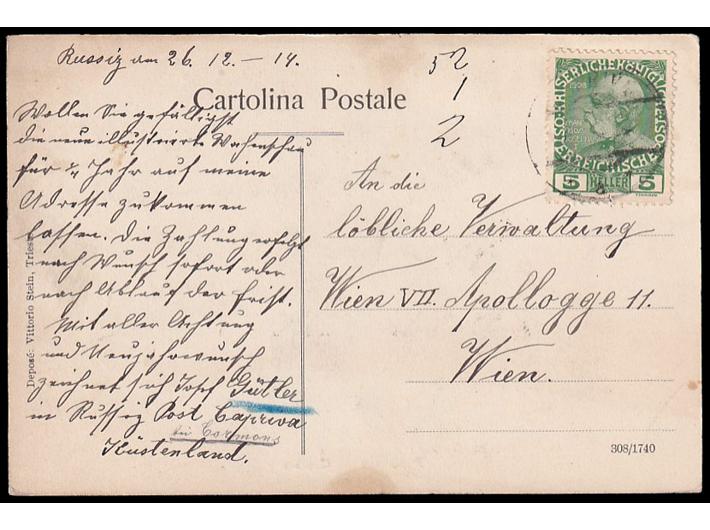 Russiz am 26. 12. – 14.
52
1
2
Cartolina Postale
Wollen Sie gefälligst
die neue illustrierte Wochenschau
für ¼ Jahr auf meine
Adresse zukommen
lassen. Die Zahlung erfolgt
nach Wunsch sofort oder
nach Ablauf der Frist.
Mit aller Achtung
und Neujahrswunsch
zeichnet sich Josef Gütler
in Russiz Post Capriva
bei Cormons
Küstenland.
An die
löbliche Verwaltung
Wien VII. Apollogge 11.
Wien.
Deposé: Vittorio Stein, Triest
308/1740
5 HELLER 5